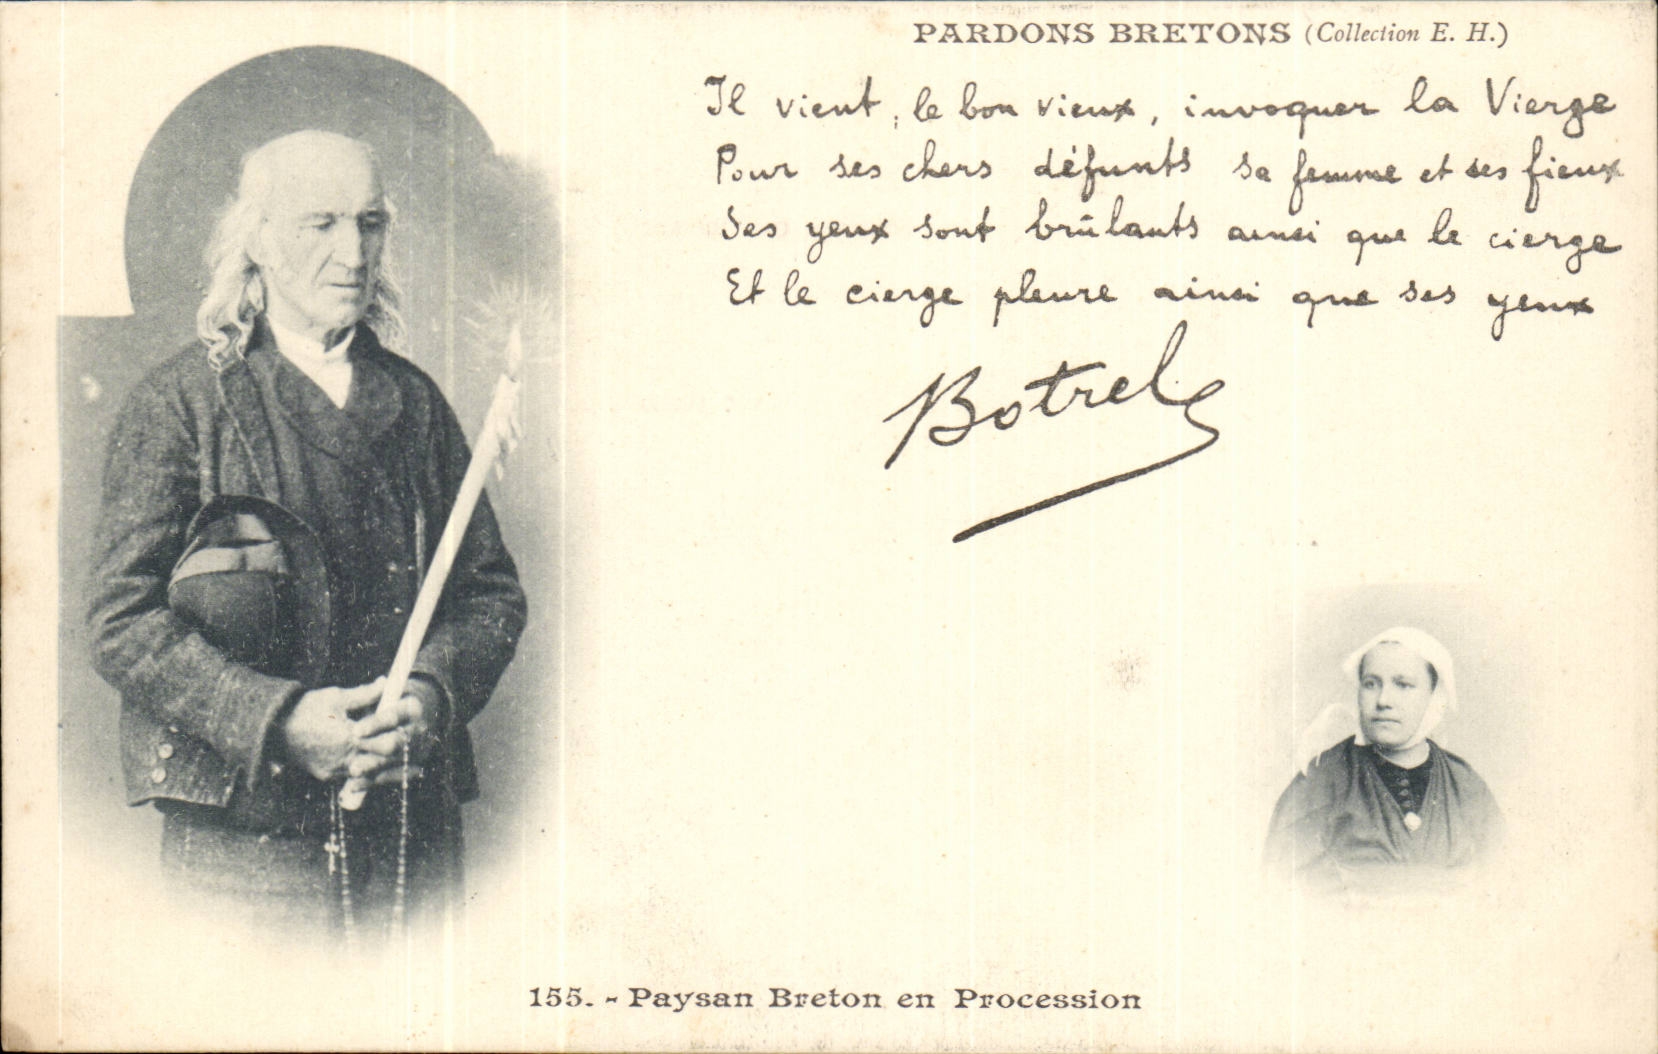 PARDONS BRETONS (Collection E. H.)
Il vient, le bon vieux, invoquer la Vierge
Pour ses chers défunts sa femme et ses fieux
Ses yeux sont brûlants ainsi que le cierge
Et le cierge pleure ainsi que ses yeux
Botrel
155. - Paysan Breton en Procession